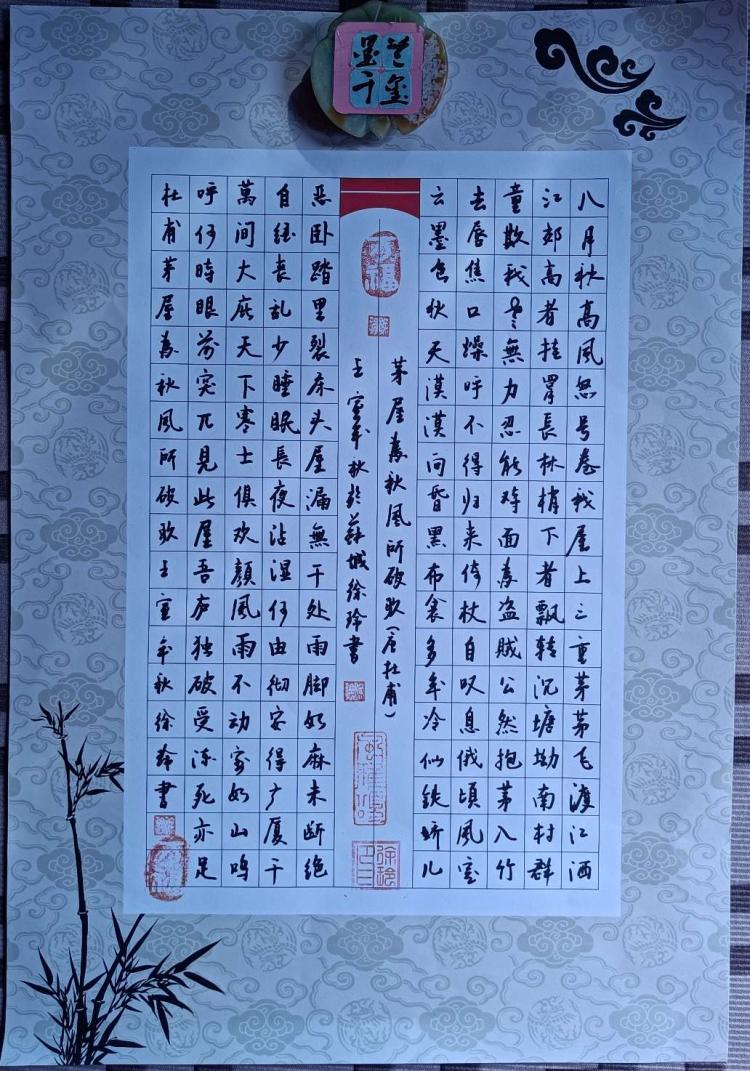 八月秋高風怒号卷我屋上三重茅茅飞渡江洒
江郊高者挂罥長林梢下者飘转沉塘坳南村群
童欺我老無力忍能对面為盗贼公然抱茅入竹
去唇焦口燥呼不得归来倚杖自叹息俄頃風定
云墨色秋天漠漠向昏黑布衾多年冷似铁娇儿
茅屋為秋風所破歌(唐杜甫)
壬寅年秋於蘇城徐玲書
恶卧踏里裂床头屋漏無干处雨脚如麻未断绝
自经丧乱少睡眠長夜沾湿何由彻安得广厦千
萬间大庇天下寒士俱欢顏風雨不动安如山鸣
呼何時眼前突兀見此屋吾庐独破受冻死亦足
杜甫茅屋為秋風所破歌壬寅年秋徐玲書